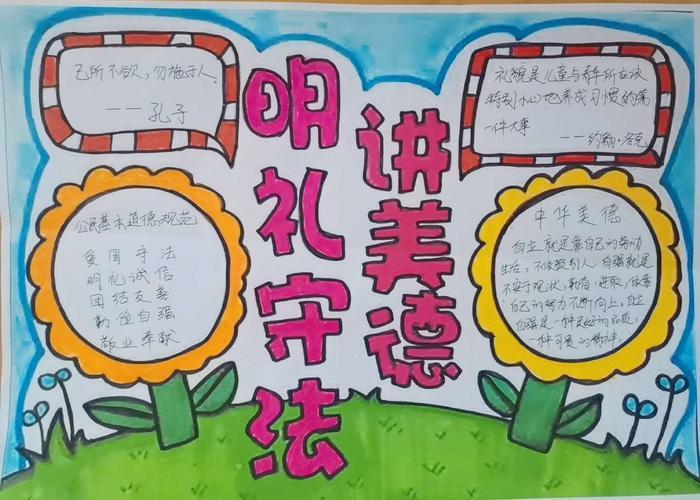 己所不欲，勿施于人。
——孔子
明礼守法
讲美德
礼貌是儿童与青年所应该
特别小心地养成习惯的第
一件大事
——约翰·洛克
公民基本道德规范
爱国守法
明礼诚信
团结友善
勤俭自强
敬业奉献
中华美德
自立就是靠自己的劳动
生活，不依赖别人；自强就是
不安于现状，勤奋，进取，依靠
自己的努力不断向上，自立
自强是一种良好的品质，
一种可贵的精神。